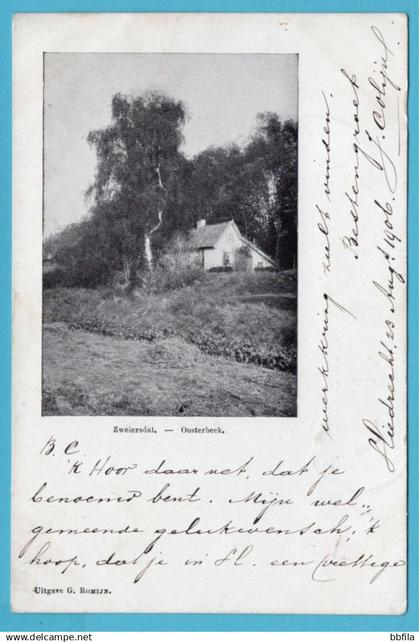 Zweiersdal. — Oosterbeek.
B. C.
'k Hoor daar net, dat je
benoemd bent. Mijn wel-
gemeende gelukwensch, 'k
hoop, dat je in Sl. een prettige
werkkring zult vinden.
Bestengroet
J. Colijn
Sliedrecht, 23 Aug. 1906.
Uitgave G. Romijn.
bbfila
http://www.bbfila.com